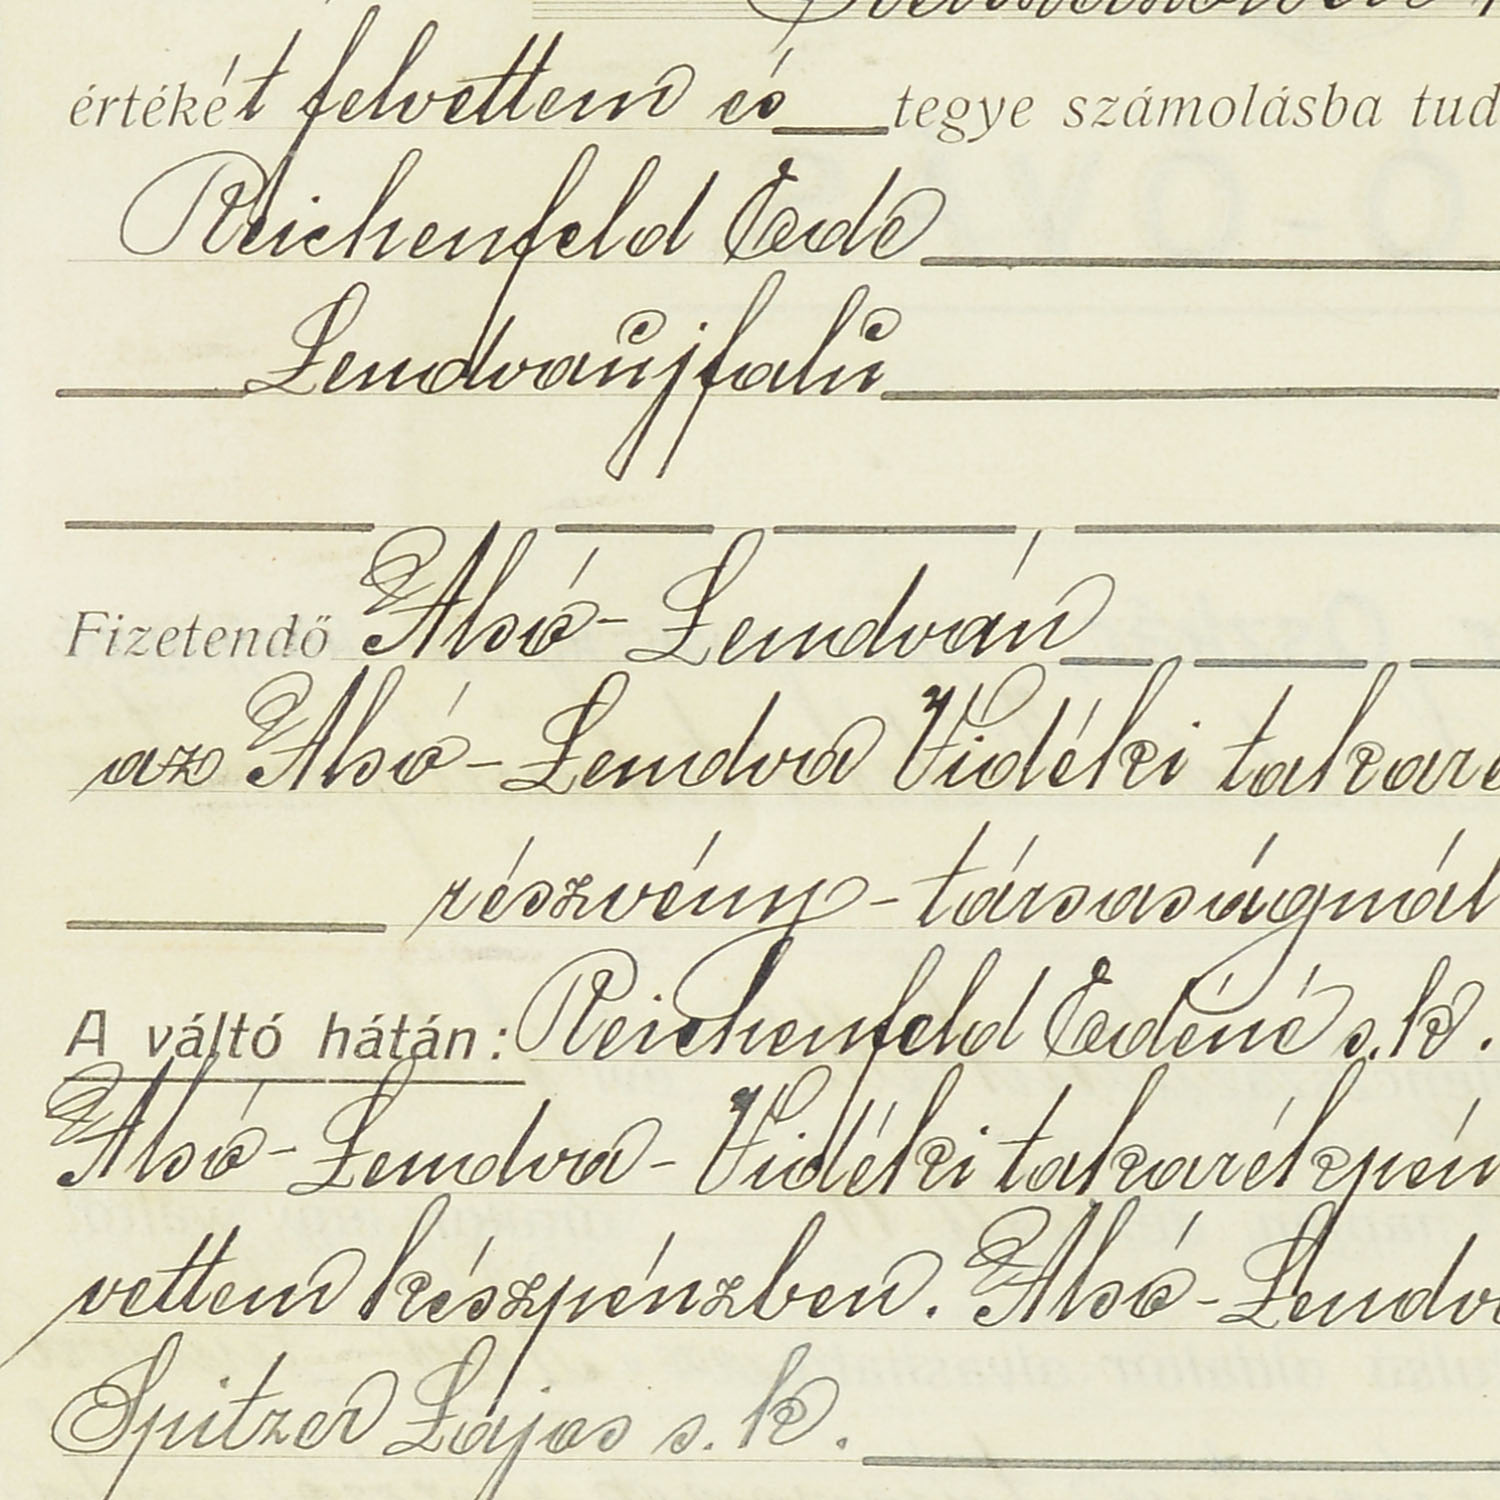 értékét felvettem és tegye számolásba tud
Reichenfeld Ede
Lendvaújfalú
Fizetendő Alsó-Lendván
az Alsó-Lendva Vidéki takaré
részvény-társaságnál
A váltó hátán: Reichenfeld Edéné s. k.
Alsó-Lendva-Vidéki takarékpén
vettem készpénzben. Alsó-Lendva
Spitzer Lajos s. k.